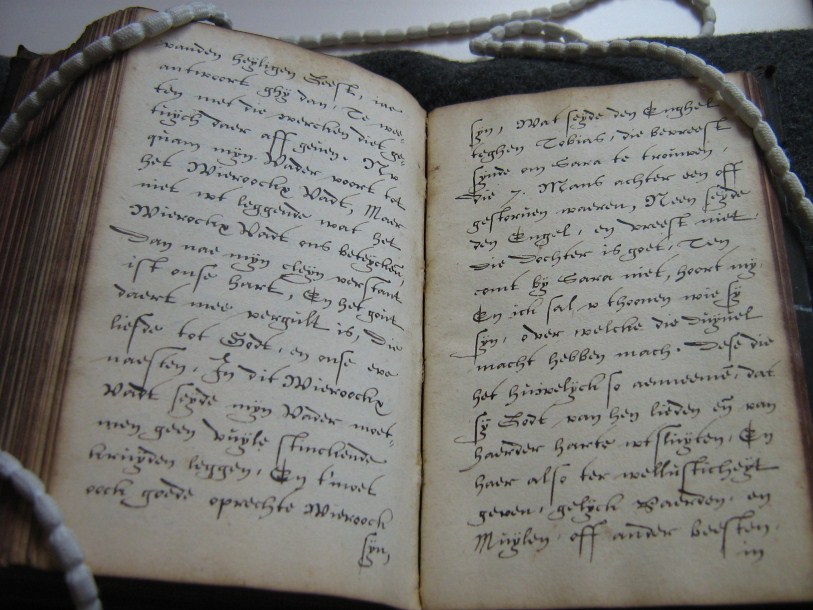 vanden heyligen Geest, me-
antwoort ghy dan, Te wee-
ten met die wercken diet ge-
tuych daer aff geven. Nu
quam myn Vader voort tot
het Wieroockx Vadt, Maer
niet wt leggende wat het
Wieroockx Vadt ons beteyckent,
Dan nae myn cleyn verstant
ist onse hart, En het gout
daert mee vergult is, Die
liefde tot Godt, en onse eve
naesten, In dit Wieroockx
Vadt seyde myn Vader moet-
men geen vuyle stinckende
kruyden leggen, En t'moet
oock goede oprechte Wieroock
syn
syn, Wat seyde den Enghel
teghen Tobias, die bevreest
synde om Sara te trouwen,
die 7. Mans achter een off
gestorven waeren, Neen seyde
den Engel, en vreest niet
die Dochter is goet, Ten
comt by Sara niet, hoort my-
En ick sal v thoonen wie sy
syn, over welcke die Duyvel
macht hebben mach. Dese die
het huwelyck so aenneemē, dat
sy Godt van hen lieden eñ van
haerder harte wtsluyten, En
haer also ter wellusticheyt
geven, gelyck Paerden, en
Muylen, off ander beesten,
in